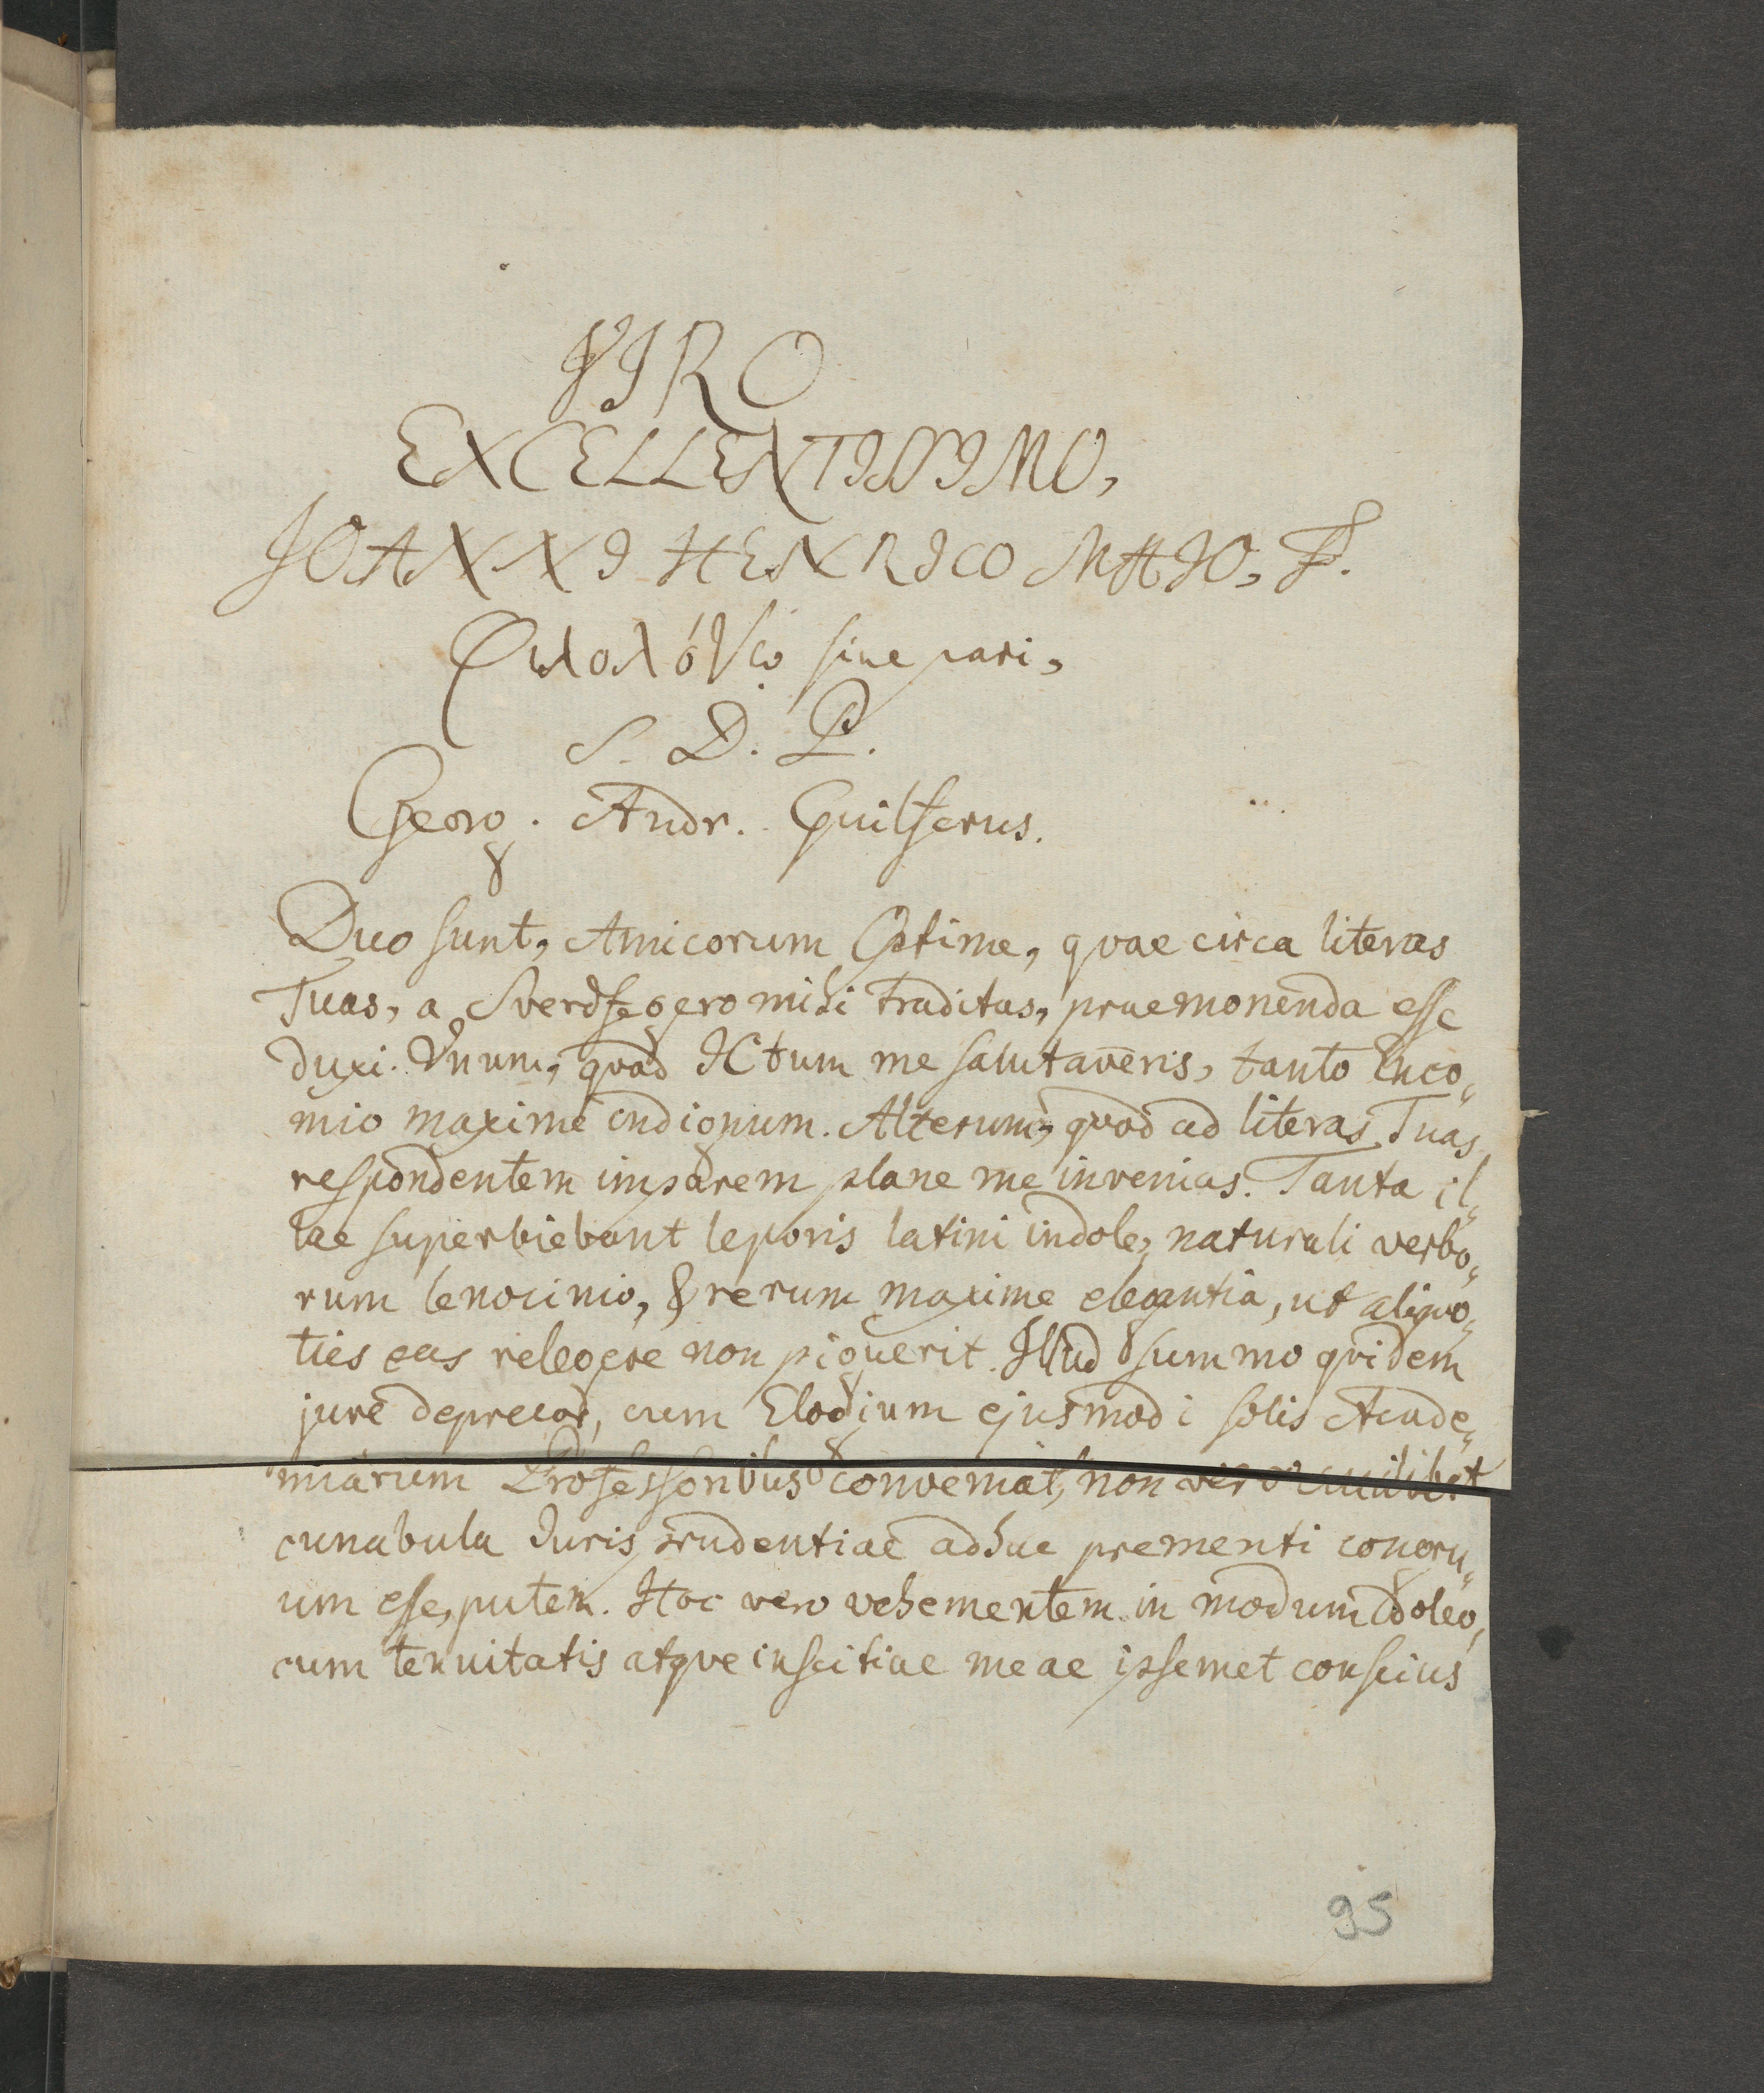 VIRO
EXCELLENTISSIMO,
JOANNI HENRICO MAJO, F.
Φιλολόγῳ sine pari,
S. D. P.
Georg. Andr. Guilferus.
Duo sunt, Amicorum Optime, qvae circa literas
Tuas, a Sverdfegero mihi traditas, praemonenda esse
duxi. Vnum, qvod ICtum me salutaveris, tanto Enco-
mio maxime indignum. Alterum, qvod ad literas Tuas
respondentem imparem plane me invenias. Tanta il-
lae superbiebant leporis latini indole, naturali verbo-
rum lenocinio, & rerum maxime elegantia, ut aliqvo-
ties eas relegere non piguerit. Illud summo qvidem
jure deprecor, cum Elogium ejusmodi solis Acade-
miarum Professoribus conveniat, non vero cuilibet
cunabula Jurisprudentiae adhuc prementi congru-
um esse, putem. Hoc vero vehementem in modum doleo,
cum tenuitatis atqve inscitiae meae ipsemet conscius
95